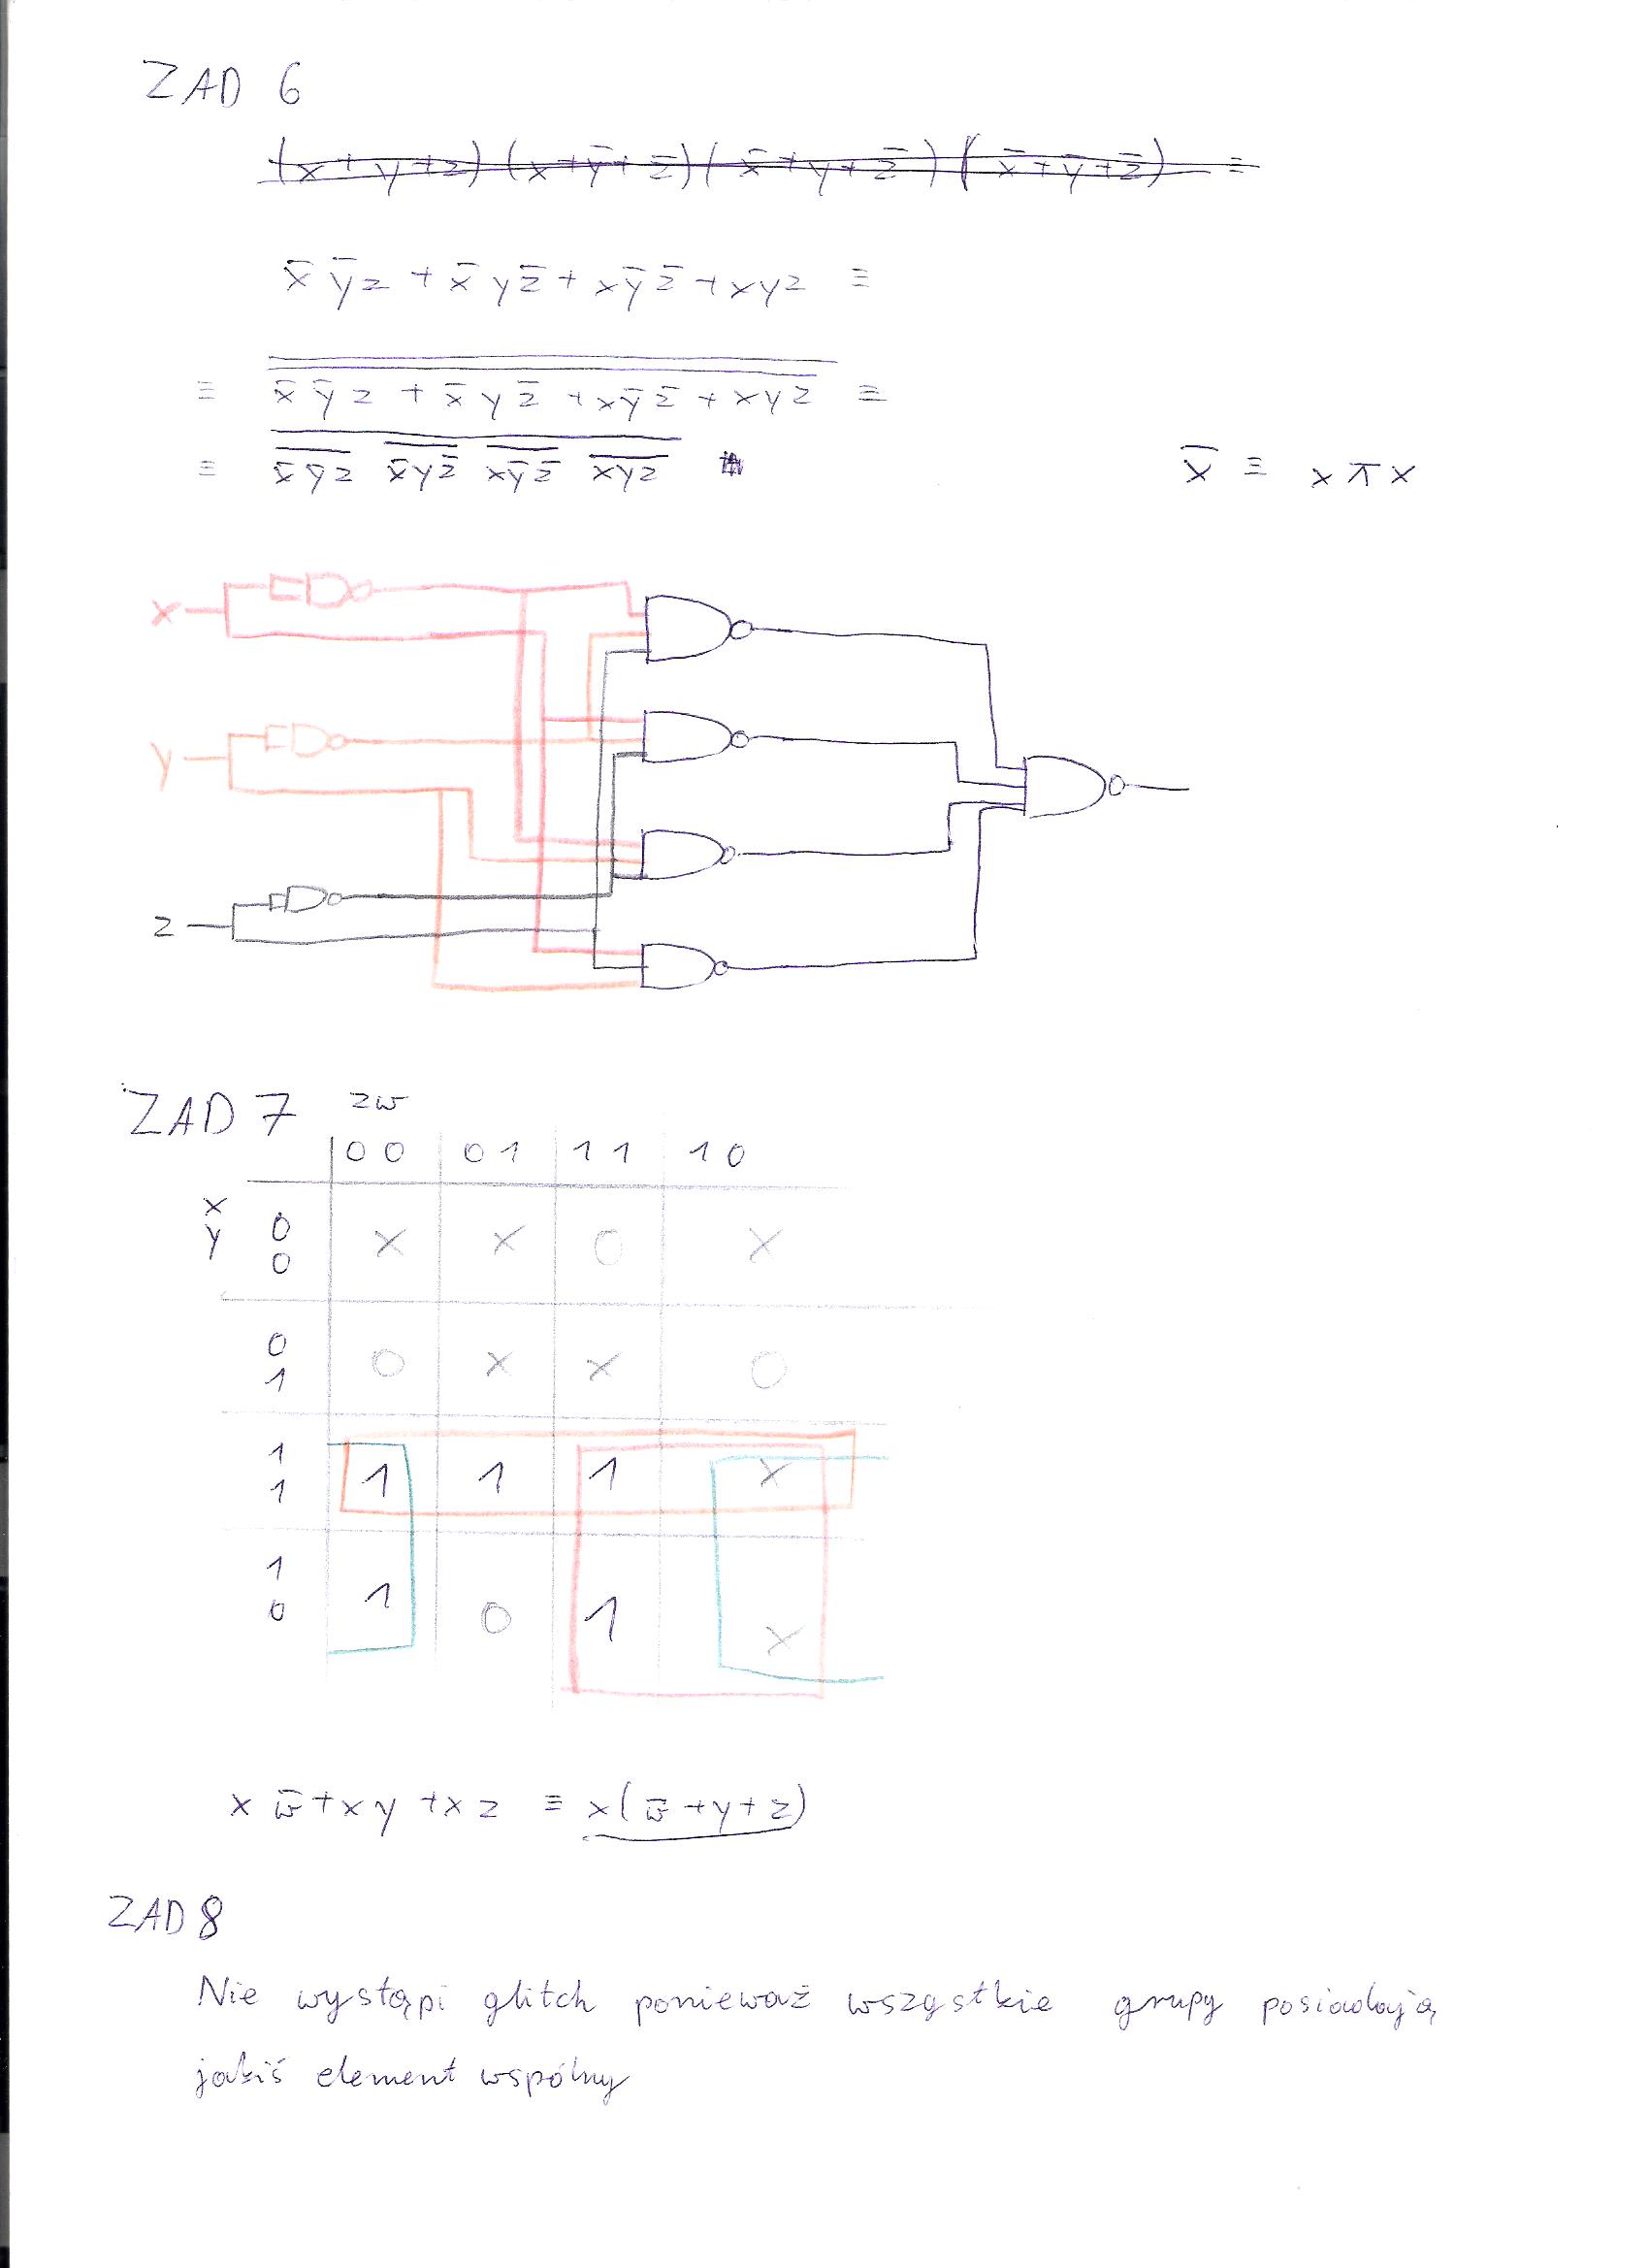 ZAD 6
(x+y+z)(x+ȳ+z̄)(x̄+y+z̄)(x̄+ȳ+z̄) ≡
x̄ȳz + x̄yz̄ + xȳz̄ + xyz ≡
≡ x̄ȳz + x̄yz̄ + xȳz̄ + xyz ≡
≡ x̄ȳz x̄yz̄ xȳz̄ xyz
x̄ ≡ x ⊼ x
x
y
z
ZAD 7
zw
00 01 11 10
x
y
00 x x 0 x
01 0 x x 0
11 1 1 1 x
10 1 0 1 x
x w̄ + x y + x z ≡ x(w̄ + y + z)
ZAD 8
Nie wystąpi glitch ponieważ wszystkie grupy posiadają
jakiś element wspólny